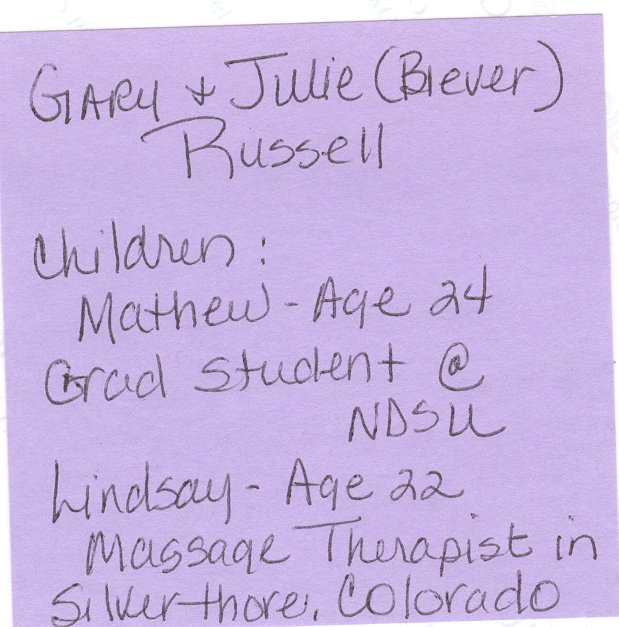 Gary + Julie (Biever)
Russell
Children:
Mathew - Age 24
Grad Student @
NDSU
Lindsay - Age 22
Massage Therapist in
Silverthore, Colorado